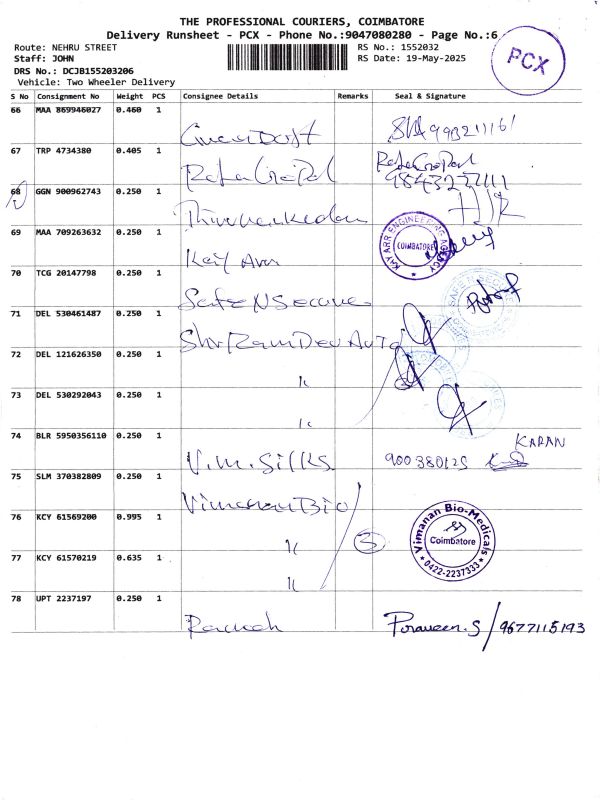 THE PROFESSIONAL COURIERS, COIMBATORE
Delivery Runsheet - PCX - Phone No.:9047080280 - Page No.:6
Route: NEHRU STREET RS No.: 1552032
Staff: JOHN RS Date: 19-May-2025
DRS No.: DCJB155203206
Vehicle: Two Wheeler Delivery
PCX
S No Consignment No Weight PCS Consignee Details Remarks Seal & Signature
66 MAA 869946027 0.460 1
67 TRP 4734380 0.405 1
RajaGopal 9843277111
68 GGN 900962743 0.250 1
69 MAA 709263632 0.250 1
Kay Arr KAY ARR ENGINEERING AGENCY COIMBATORE
70 TCG 20147798 0.250 1
Safe N Secure
71 DEL 530461487 0.250 1
Shri Ram Dev Auto
72 DEL 121626350 0.250 1
73 DEL 530292043 0.250 1
74 BLR 5950356110 0.250 1
V.M. Silks 900380125 KARAN
75 SLM 370382809 0.250 1
Vimanan Bio
76 KCY 61569200 0.995 1
3 Vimanan Bio-Medicals Coimbatore 0422-2237333
77 KCY 61570219 0.635 1
78 UPT 2237197 0.250 1
Ramesh Praveen.S / 9677115193